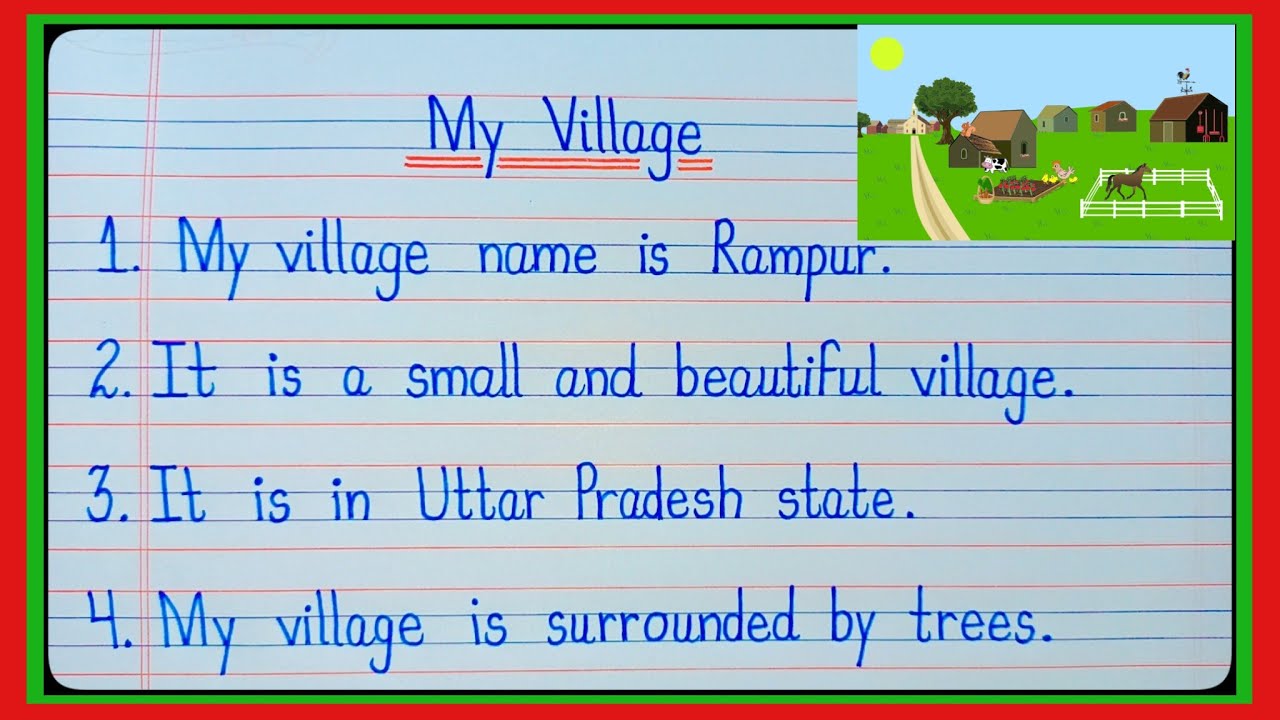 My Village
1. My village name is Rampur.
2. It is a small and beautiful village.
3. It is in Uttar Pradesh state.
4. My village is surrounded by trees.